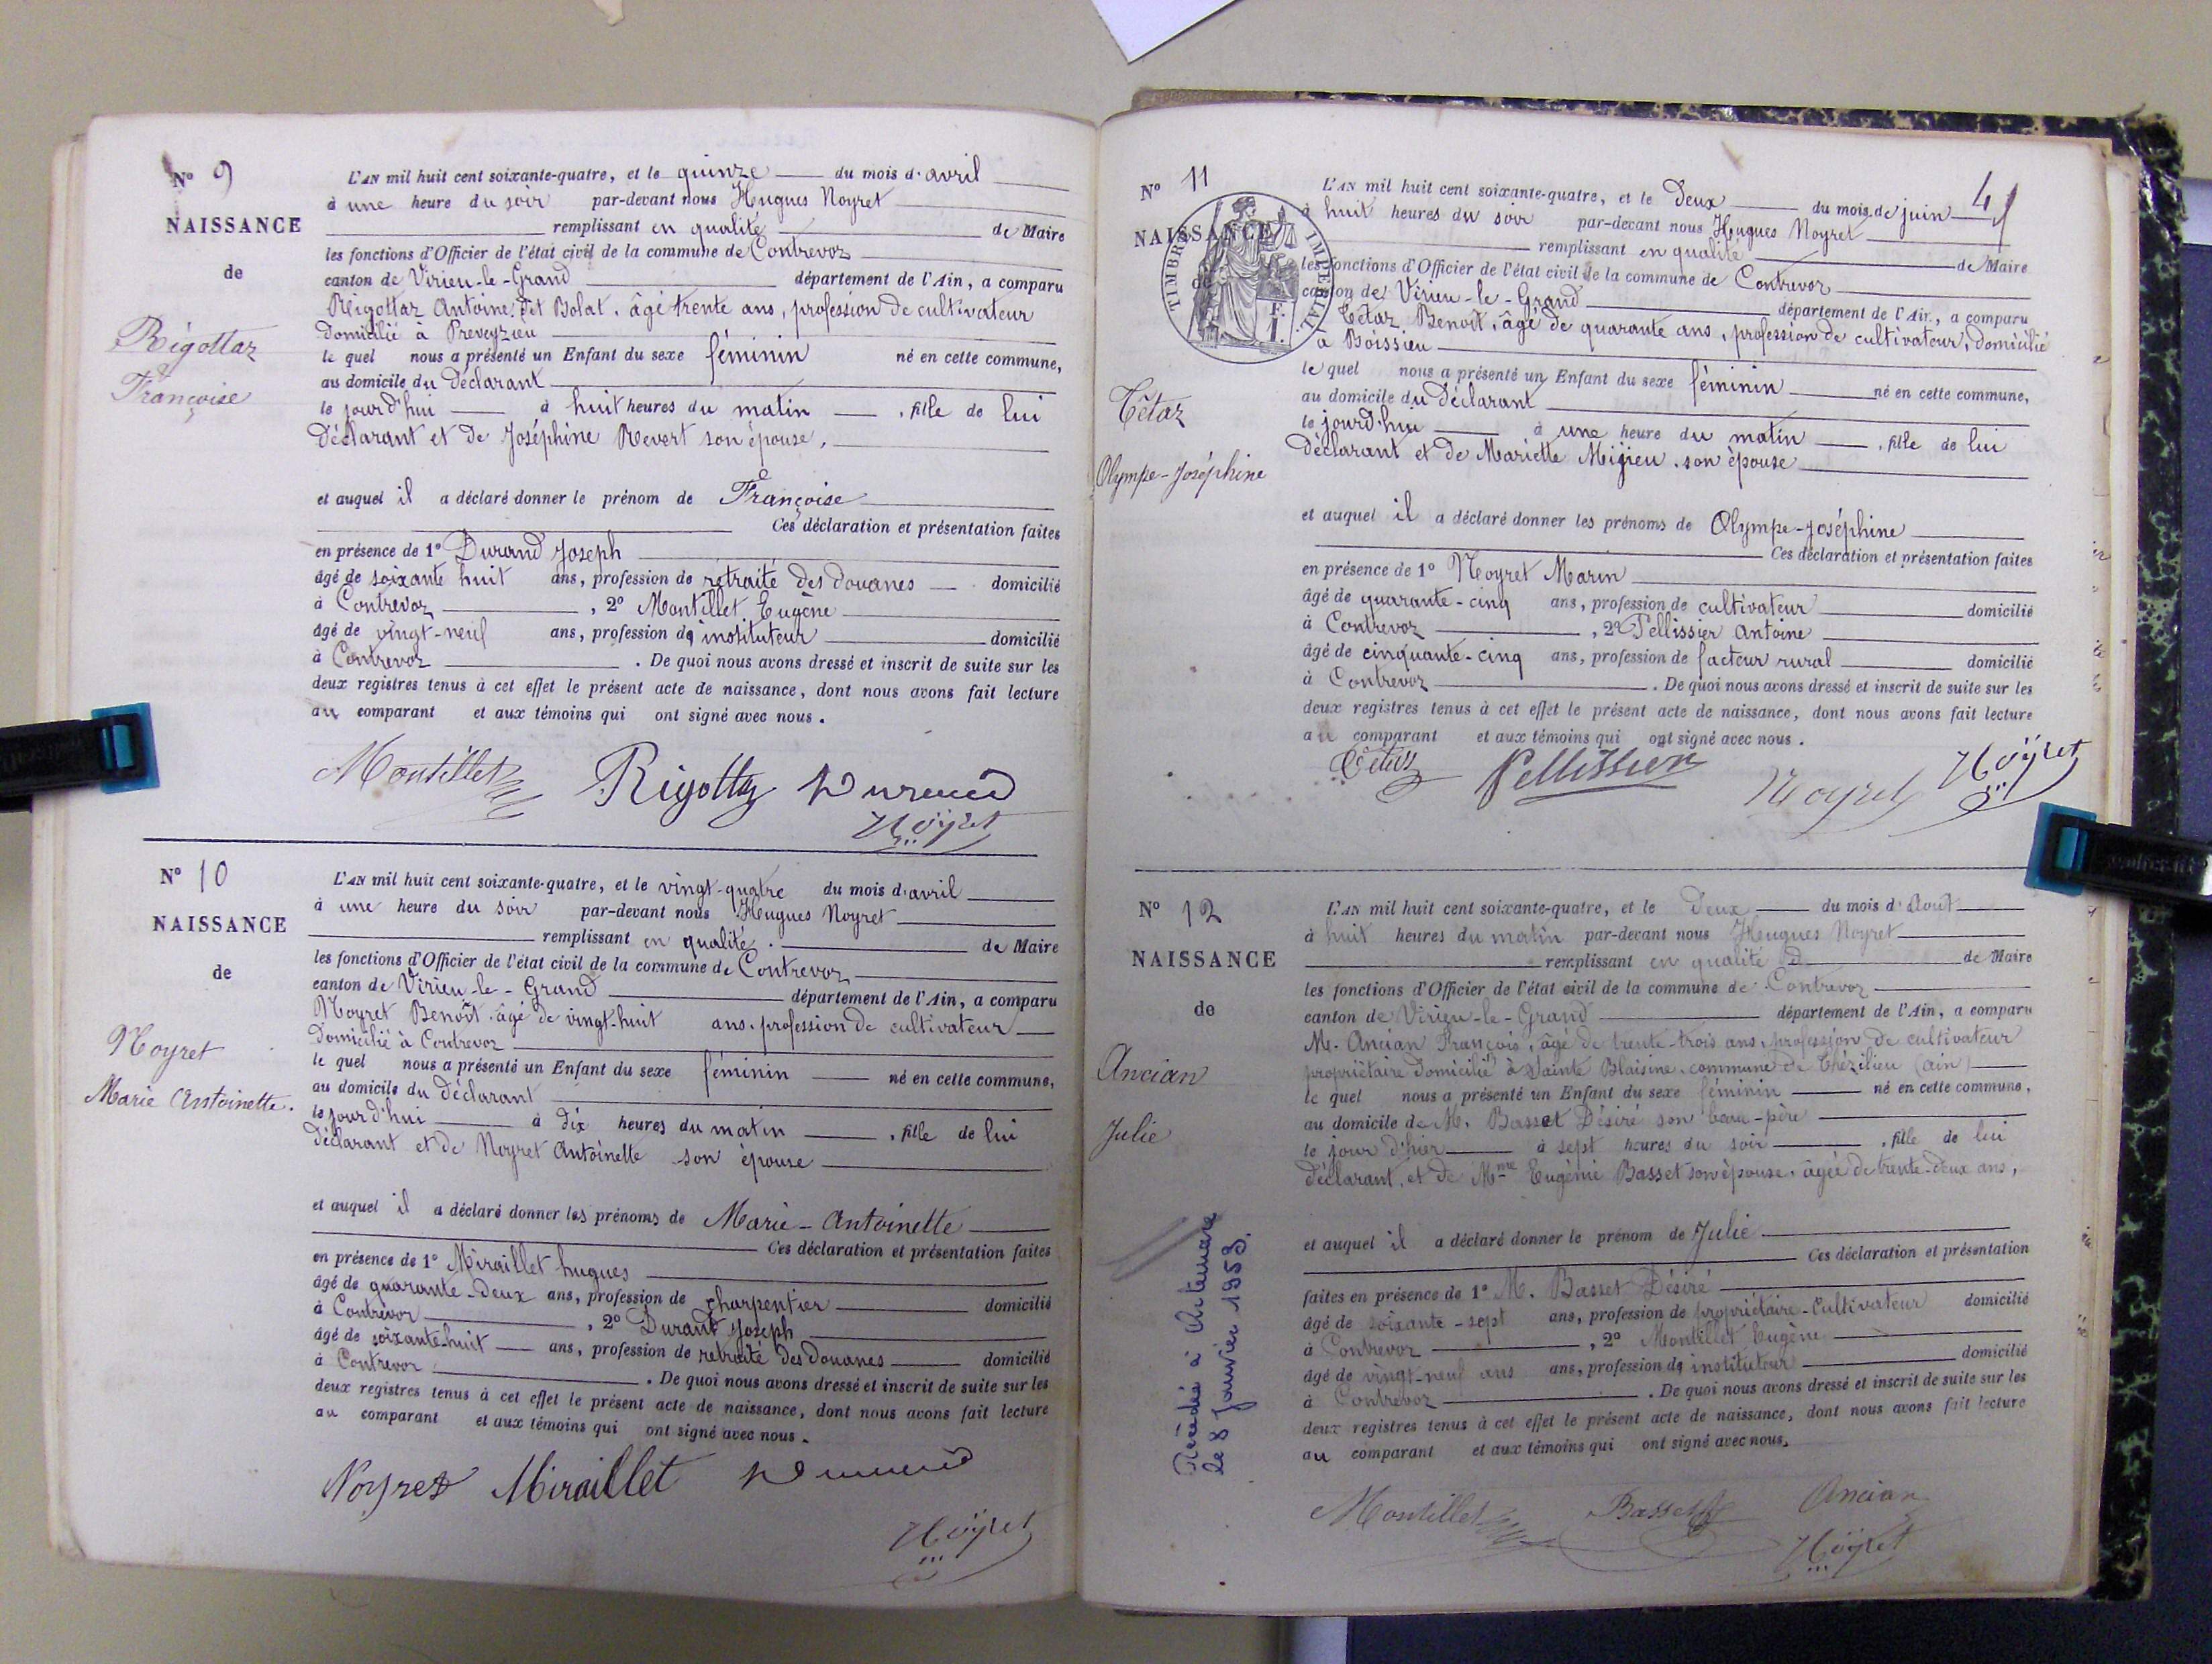 N° 9
NAISSANCE
de
Rigottaz
Françoise
L'AN mil huit cent soixante-quatre, et le quinze du mois d'avril
à une heure du soir par-devant nous Hugues Noyret
remplissant en qualité de Maire
les fonctions d'Officier de l'état civil de la commune de Contrevoz
canton de Virieu-le-Grand département de l'Ain, a comparu
Rigottaz Antoine, dit Bolat, âgé trente ans, profession de cultivateur
domicilié à Preveyzieu
le quel nous a présenté un Enfant du sexe féminin né en cette commune,
au domicile du déclarant
le jourd'hui à huit heures du matin, fille de lui
déclarant et de Joséphine Revert son épouse,
et auquel il a déclaré donner le prénom de Françoise
Ces déclaration et présentation faites
en présence de 1° Durand Joseph
âgé de soixante huit ans, profession de retraité des douanes domicilié
à Contrevoz, 2° Montillet Eugène
âgé de vingt-neuf ans, profession de instituteur domicilié
à Contrevoz. De quoi nous avons dressé et inscrit de suite sur les
deux registres tenus à cet effet le présent acte de naissance, dont nous avons fait lecture
au comparant et aux témoins qui ont signé avec nous.
Montillet Rigottaz Durand
Noÿret
N° 10
NAISSANCE
de
Noyret
Marie Antoinette.
L'AN mil huit cent soixante-quatre, et le vingt-quatre du mois d'avril
à une heure du soir par-devant nous Hugues Noyret
remplissant en qualité de Maire
les fonctions d'Officier de l'état civil de la commune de Contrevoz
canton de Virieu-le-Grand département de l'Ain, a comparu
Noyret Benoît, âgé de vingt-huit ans, profession de cultivateur
domicilié à Contrevoz
le quel nous a présenté un Enfant du sexe féminin né en cette commune,
au domicile du déclarant
le jourd'hui à dix heures du matin, fille de lui
déclarant et de Noyret Antoinette son épouse
et auquel il a déclaré donner les prénoms de Marie-Antoinette
Ces déclaration et présentation faites
en présence de 1° Miraillet hugues
âgé de quarante-deux ans, profession de charpentier domicilié
à Contrevoz, 2° Durant Joseph
âgé de soixante-huit ans, profession de retraité des douanes domicilié
à Contrevoz. De quoi nous avons dressé et inscrit de suite sur les
deux registres tenus à cet effet le présent acte de naissance, dont nous avons fait lecture
au comparant et aux témoins qui ont signé avec nous.
Noyret Miraillet Durand
Noÿret
N° 11
NAISSANCE
de
TIMBRE IMPÉRIAL
F.
1.
Tétaz
Olympe-Joséphine
L'AN mil huit cent soixante-quatre, et le deux du mois de juin
à huit heures du soir par-devant nous Hugues Noyret
remplissant en qualité de Maire
les fonctions d'Officier de l'état civil de la commune de Contrevoz
canton de Virieu-le-Grand département de l'Ain, a comparu
Tétaz Benoît, âgé de quarante ans, profession de cultivateur, domicilié
à Boissieu
le quel nous a présenté un Enfant du sexe féminin né en cette commune,
au domicile du déclarant
le jourd'hui à une heure du matin, fille de lui
déclarant et de Mariette Migieu, son épouse
et auquel il a déclaré donner les prénoms de Olympe-Joséphine
Ces déclaration et présentation faites
en présence de 1° Noyret Marin
âgé de quarante-cinq ans, profession de cultivateur domicilié
à Contrevoz, 2° Pellissier Antoine
âgé de cinquante-cinq ans, profession de facteur rural domicilié
à Contrevoz. De quoi nous avons dressé et inscrit de suite sur les
deux registres tenus à cet effet le présent acte de naissance, dont nous avons fait lecture
au comparant et aux témoins qui ont signé avec nous.
Tétaz Pellissier Noyret Noÿret
N° 12
NAISSANCE
de
Ancian
Julie
Décédée à Artemare
le 8 Janvier 1953.
L'AN mil huit cent soixante-quatre, et le deux du mois d'Août
à huit heures du matin par-devant nous Hugues Noyret
remplissant en qualité de Maire
les fonctions d'Officier de l'état civil de la commune de Contrevoz
canton de Virieu-le-Grand département de l'Ain, a comparu
M. Ancian François, âgé de trente-trois ans, profession de cultivateur
propriétaire domicilié à Sainte Blaisine, commune de Thézilieu (ain)
le quel nous a présenté un Enfant du sexe féminin né en cette commune,
au domicile de M. Basset Désiré son beau-père
le jour d'hier à sept heures du soir, fille de lui
déclarant, et de Mme Eugénie Basset son épouse, âgée de trente-deux ans,
et auquel il a déclaré donner le prénom de Julie
Ces déclaration et présentation
faites en présence de 1° M. Basset Désiré
âgé de soixante-sept ans, profession de propriétaire-cultivateur domicilié
à Contrevoz, 2° Montillet Eugène
âgé de vingt-neuf ans ans, profession de instituteur domicilié
à Contrevoz. De quoi nous avons dressé et inscrit de suite sur les
deux registres tenus à cet effet le présent acte de naissance, dont nous avons fait lecture
au comparant et aux témoins qui ont signé avec nous.
Montillet Basset Ancian
Noÿret